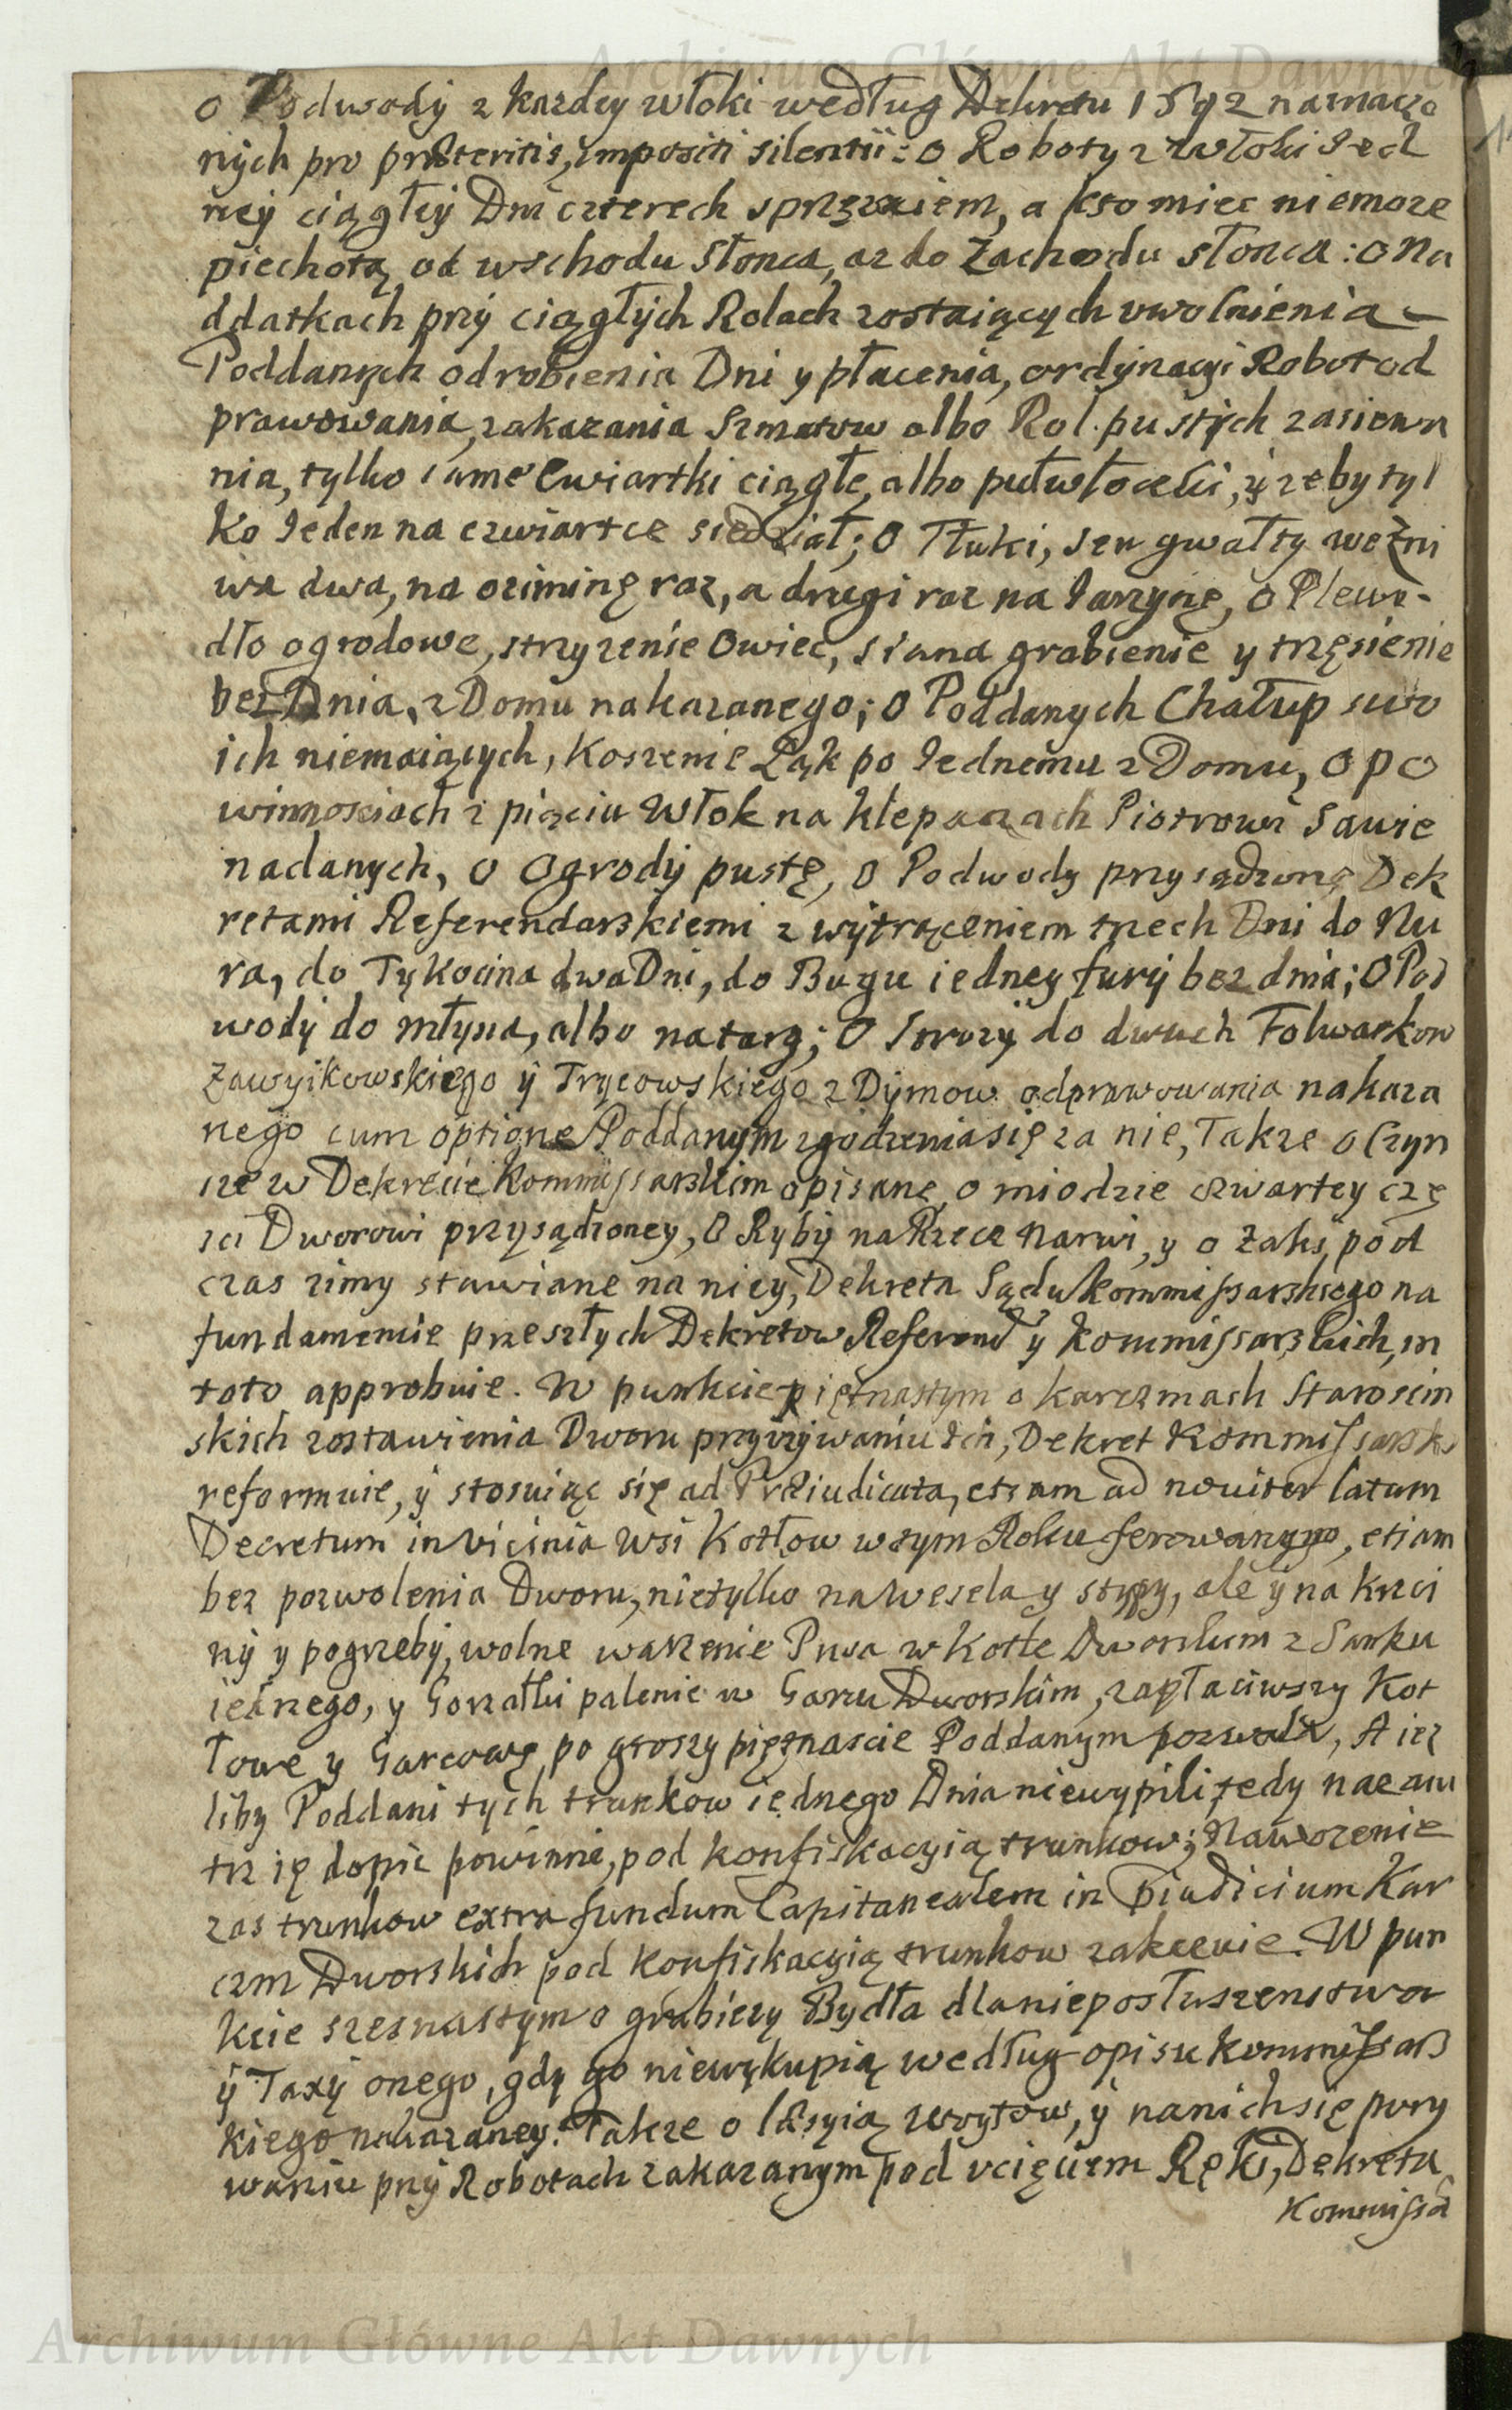 Archiwum Główne Akt Dawnych
o Podwody z kazdey włoki według Dekretu 1592 naznaczo
nych pro præteritis, impositi silentii: o Roboty z włoki Jed
ney ciągłey Dni czterech sprzęzaiem, a kto miec niemoze
piechotą, od wschodu Słonca, az do Zachodu słonca: o Na
ddatkach przy ciągłych Rolach zostaiących uwolnienia
Poddanych odrobienia Dni y płacenia, ordynacyi Robot od
prawowania, zakazania Szmatow albo Rol pustych zasiewa
nia, tylko same Cwiartki ciągłe, albo pułwłoczki, ÿ zeby tyl
ko Jeden na czwiartce siedział; O Tłuki, seu gwałty we Zni
wa dwa, na oziminę raz, a drugi raz na Jarzynę, o Plewi-
dło ogrodowe, strzyzenie Owiec, siana grabienie y trzęsienie
bez Dnia, z Domu nakazanego; o Poddanych Chałup swo
ich niemaiących, Koszenie Łąk po Jednemu z Domu, o po
winnosciach z pięciu Włok na Klepaczach Piotrowi Sawie
nadanych, o Ogrody pustę, o Podwody przysądzone Dek
retami Referendarskiemi z wytrąceniem trzech Dni do Nu
ra, do Tykocina dwa Dni, do Bugu iedney fury bez dnia; O Pod
wody do młyna, albo na targ; O Strozy do dwuch Folwarkow
Zawyikowskiego ÿ Trycowskiego z Dymow odprawowania nakaza
nego cum optione Poddanym zgodzenia się za nie, Takze o Czyn
sze w Dekrecie Kommissarskim opisane, o miodzie czwartey czę
sci Dworowi przysądzoney, O Ryby na Rzece Narwi, y o Zaki, pod
czas zimy stawiane na niey, Dekreta Sądu Kommissarskiego na
fundamencie przeszłych Dekretow Referend y Kommissarskich, in
toto approbuie. W punkcie piętnastym o karczmach Staroscin
skich zostawienia Dworu przy uzywaniu ich, Dekret Kommissarsk
reformuie, ÿ stosuiąc się ad Præiudicata, etiam ad noviter latum
Decretum in vicinia Wsi Kotłow w tym Roku ferowanego, etiam
bez pozwolenia Dworu, nietylko na Wesela y stypy, ale ÿ na krzci
ny y pogrzeby, wolne warzenie Piwa w Kotle Dworskim z Sanku
iednego, y Gorzałki palenie w Garcu Dworskim, zapłaciwszy Kot
łowe y Garcowę po groszy piętnascie Poddanym pozwala, A iez
liby Poddani tych trunkow iednego Dnia niewypili, tedy nazaiu
trz ię dopic powinni, pod konfiskacyią trunkow; Nawozenie
zas trunkow extra fundum Capitanealem in Præiudicium Kar
czm Dworskich pod konfiskacyią trunkow zakazuie. W pun
kcie szesnastym o grabiezy Bydła dla nieposłuszenstwa
ÿ Taxy onego, gdy go niewykupią według opisu Kommissars
kiego nakazaney: Takze o læsyią woytow, ÿ na nich się pory
waniu przy Robotach zakazanym pod ucięciem Ręki, Dekreta
Kommissa
Archiwum Główne Akt Dawnych